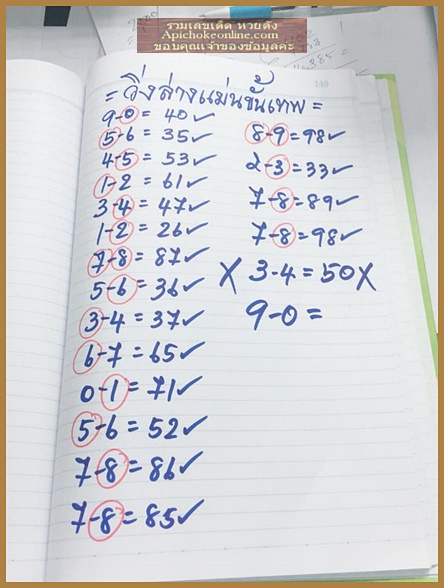 รวมเลขเด็ด หวยดัง
Apichokeonline.com
ขอบคุณเจ้าของข้อมูลค่ะ
140
= วิ่งล่างแม่นขั้นเทพ =
9-0 = 40✓
5-6 = 35✓
4-5 = 53✓
1-2 = 61✓
3-4 = 47✓
1-2 = 26✓
7-8 = 87✓
5-6 = 36✓
3-4 = 37✓
6-7 = 65✓
0-1 = 71✓
5-6 = 52✓
7-8 = 86✓
7-8 = 85✓
8-9 = 98✓
2-3 = 33✓
7-8 = 89✓
7-8 = 98✓
X 3-4 = 50X
9-0 =